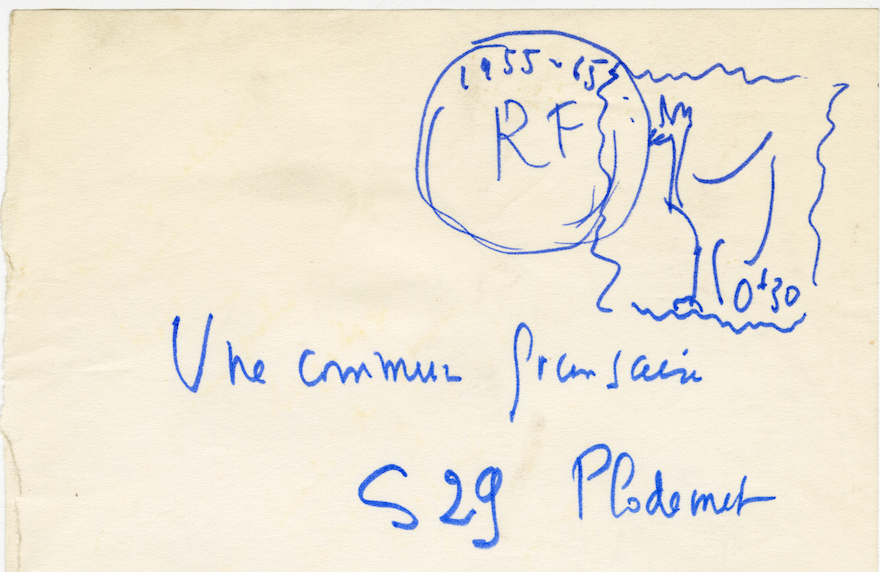 1955-65
RF
0f30
Une commune française
S 29 Plodemet